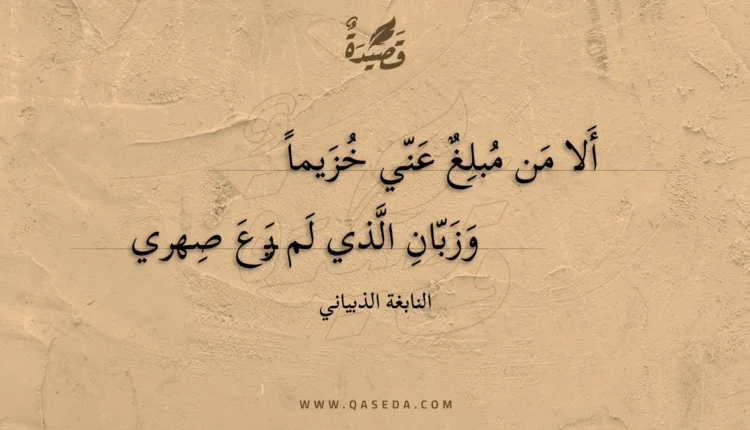 قَصِيدَةٌ
أَلا مَن مُبلِغٌ عَنّي خُزَيماً
وَزَبّانِ الَّذي لَم يَرعَ صِهري
النابغة الذبياني
WWW.QASEDA.COM